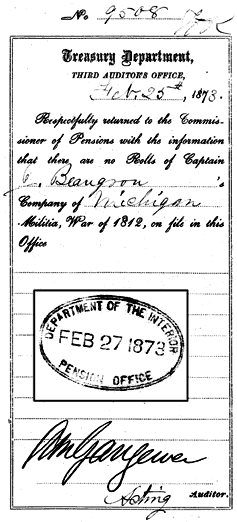 No. 9508
Treasury Department,
THIRD AUDITOR'S OFFICE,
Feb. 25th, 1873.
Respectfully returned to the Commis-
sioner of Pensions with the information
that there are no Rolls of Captain
J. Beaugron 's
Company of Michigan
Militia, War of 1812, on file in this
Office
DEPARTMENT OF THE INTERIOR
FEB 27 1873
PENSION OFFICE
AMGangewer
Acting Auditor.